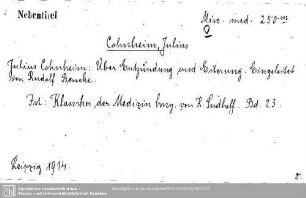 Nebentitel
Misc. med. 250 m
Cohnheim, Julius
Julius Cohnheim: Über Entzündung und Eiterung. Eingeleitet
von Rudolf Beneke.
Fst: Klassiker der Medizin hrsg. von K. Sudhoff. Bd. 23.
Leipzig 1914.
8.
Sächsische Landesbibliothek -
Staats- und Universitätsbibliothek Dresden